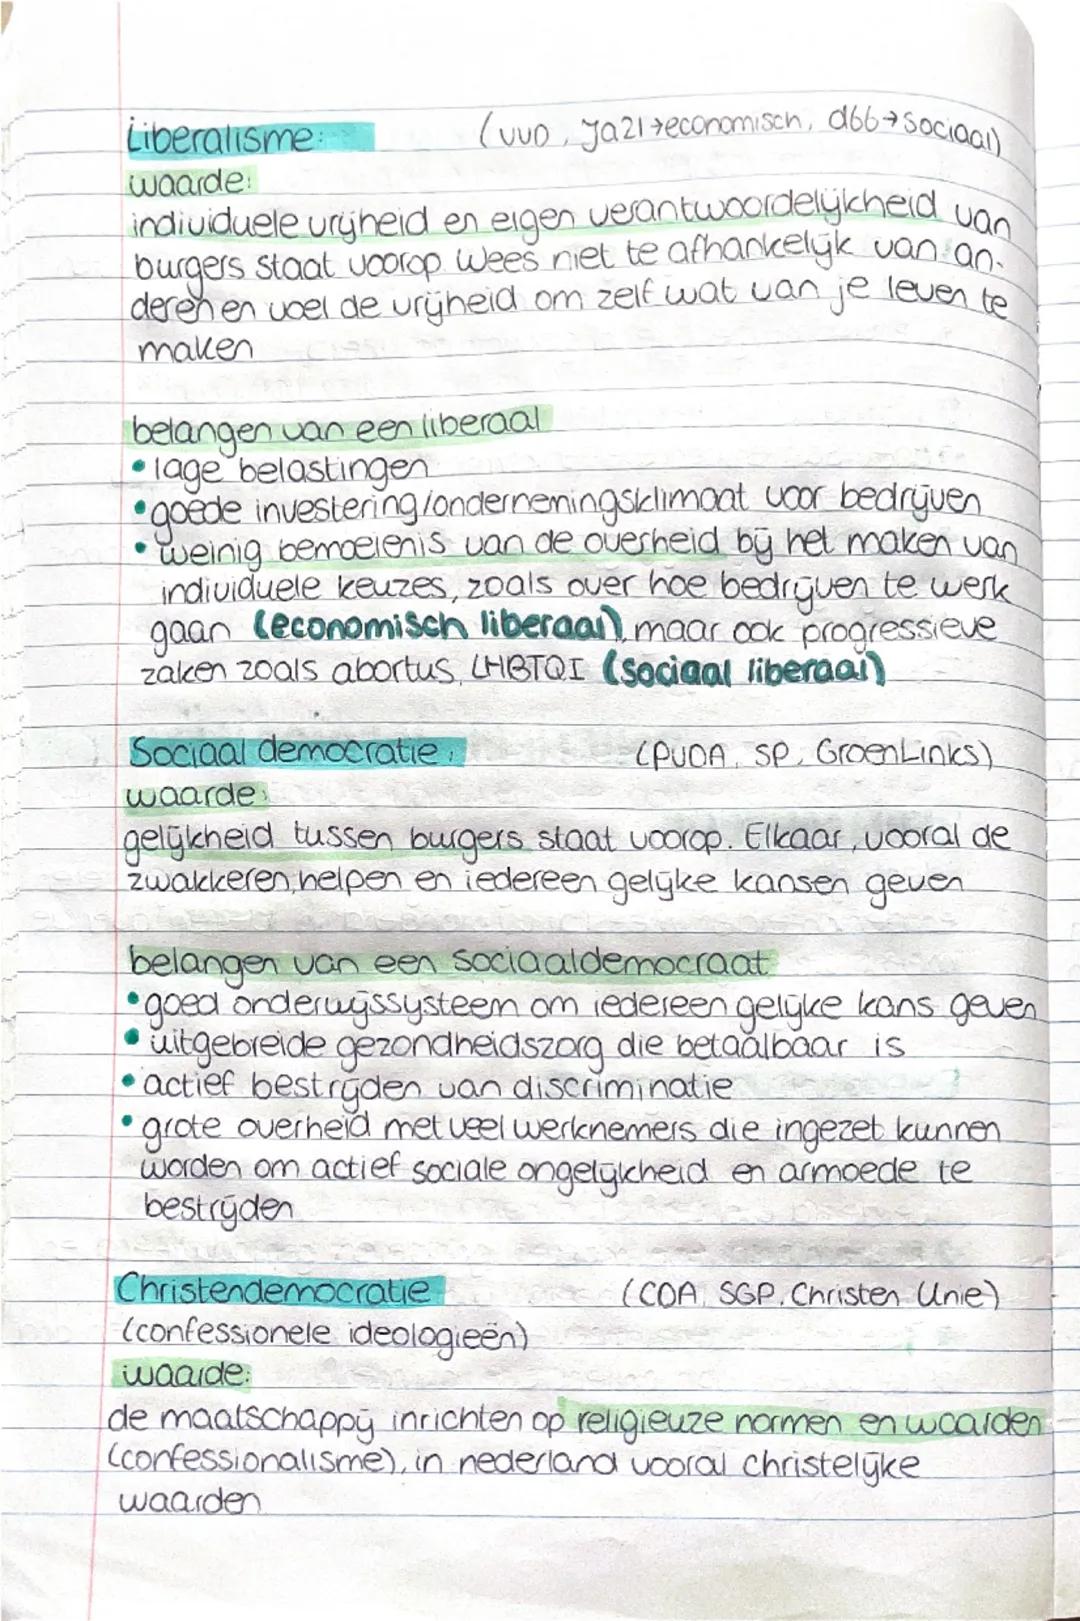 Liberalisme: (VVD, Ja21→economisch, d66→sociaal)
waarde:
individuele vrijheid en eigen verantwoordelijkheid van
burgers staat voorop. Wees niet te afhankelijk van an-
deren en voel de vrijheid om zelf wat van je leven te
maken
belangen van een liberaal
• lage belastingen
• goede investering/ondernemingsklimaat voor bedrijven
• weinig bemoeienis van de overheid bij het maken van
individuele keuzes, zoals over hoe bedrijven te werk
gaan (economisch liberaal), maar ook progressieve
zaken zoals abortus, LHBTQI (sociaal liberaal)
Sociaal democratie: (PVDA, SP, GroenLinks)
waarde:
gelijkheid tussen burgers staat voorop. Elkaar, vooral de
zwakkeren, helpen en iedereen gelijke kansen geven
belangen van een sociaaldemocraat
• goed onderwijssysteem om iedereen gelijke kans geven
• uitgebreide gezondheidszorg die betaalbaar is
• actief bestrijden van discriminatie
• grote overheid met veel werknemers die ingezet kunnen
worden om actief sociale ongelijkheid en armoede te
bestrijden
Christendemocratie (CDA, SGP, Christen Unie)
(confessionele ideologieën)
waarde:
de maatschappij inrichten op religieuze normen en waarden
(confessionalisme), in nederland vooral christelijke
waarden